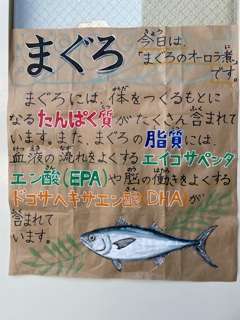 まぐろ
今日は、
「まぐろのオーロラ煮」
です。
まぐろには、体をつくるもとに
なるたんぱく質がたくさん含まれて
います。また、まぐろの脂質には、
血液の流れをよくするエイコサペンタ
エン酸(EPA)や脳の働きをよくする
ドコサヘキサエン酸DHAが
含まれて
います。